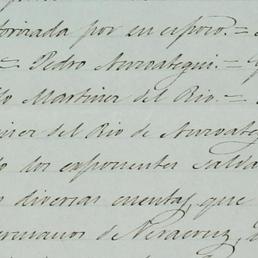 torizada por su esposo.=
= Pedro Anzoategui.=
lo Martinez del Rio.=
inez del Rio de Anzoateg
do los exponentes salda
s diversas cuentas, que
ermanos de Veracruz,